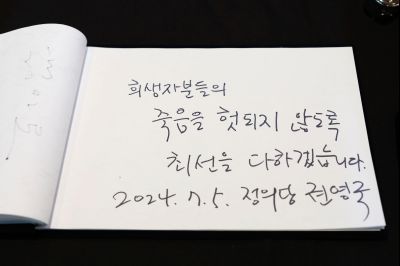 희생자분들의
죽음을 헛되지 않도록
최선을 다하겠습니다.
2024. 7. 5. 정의당 권영국